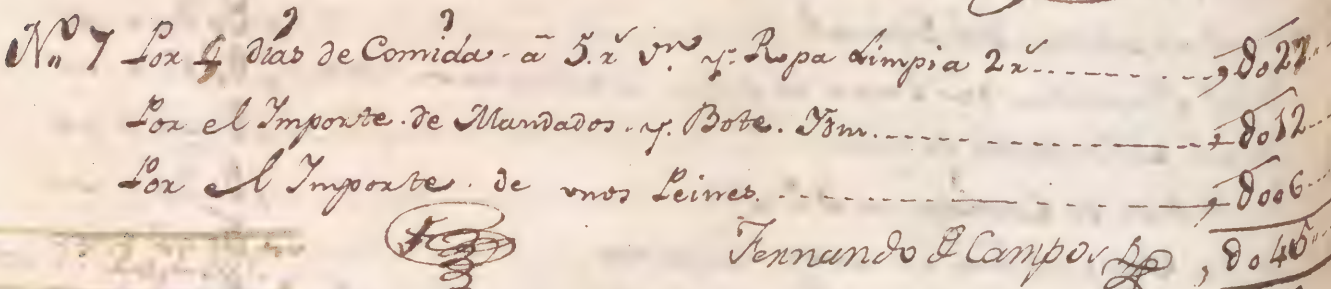 Nº 7 Por 4 dias de Comida. a 5. rˢ vⁿ y. Ropa Limpia 2 rˢ. 27
Por el Importe. de Mandados. y. Bote. 12
Por el Importe. de unos Peines. 6
Fernando Campos